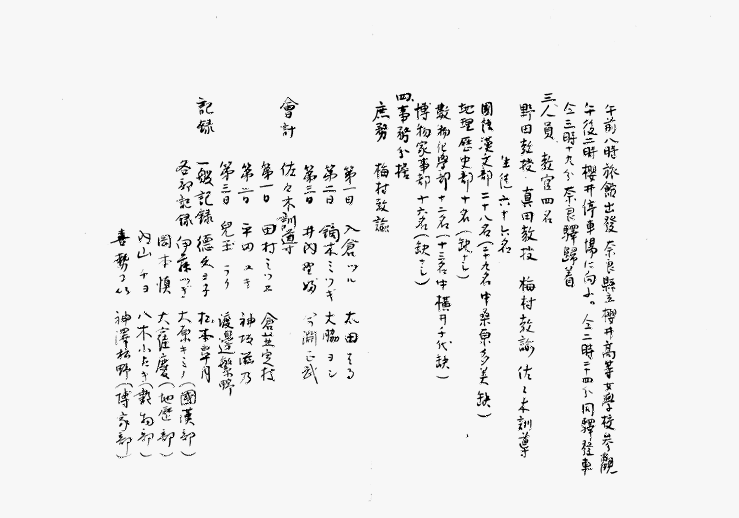 午前八時旅館出發 奈良縣立櫻井高等女學校参觀
午後二時櫻井停車場に向ふ。仝二時二十四分同驛發車
仝三時十九分奈良驛歸着
三、人員 教官四名
野田教授 真田教授 梅村教諭 佐々木訓導
生徒六十六名
國語漢文部 二十八名(二十九名中桑原多美缺)
地理歴史部 十名(缺ナシ)
數物化學部 十二名(十三名中横井千代缺)
博物家事部 十六名(缺ナシ)
四、事務分擔
庶務 梅村教諭
第一日 入倉ツル 太田はる
第二日 鏑木ミツギ 大脇ヨシ
第三日 井内 今淵正武
會計 佐々木訓導
第一日 田村ミツヱ 倉 定枝
第二日 平田ユキ 神坂滋乃
第三日 兒玉 渡邊繁野
記録 一般記録 德久ヨネ 松本皐月
各部記録 伊藤つぎ 大原キミノ(國漢部)
岡本慎 大 慶(地歴部)
内山チヨ 八木ふたき(數物部)
喜勢 神澤松野(博家部)